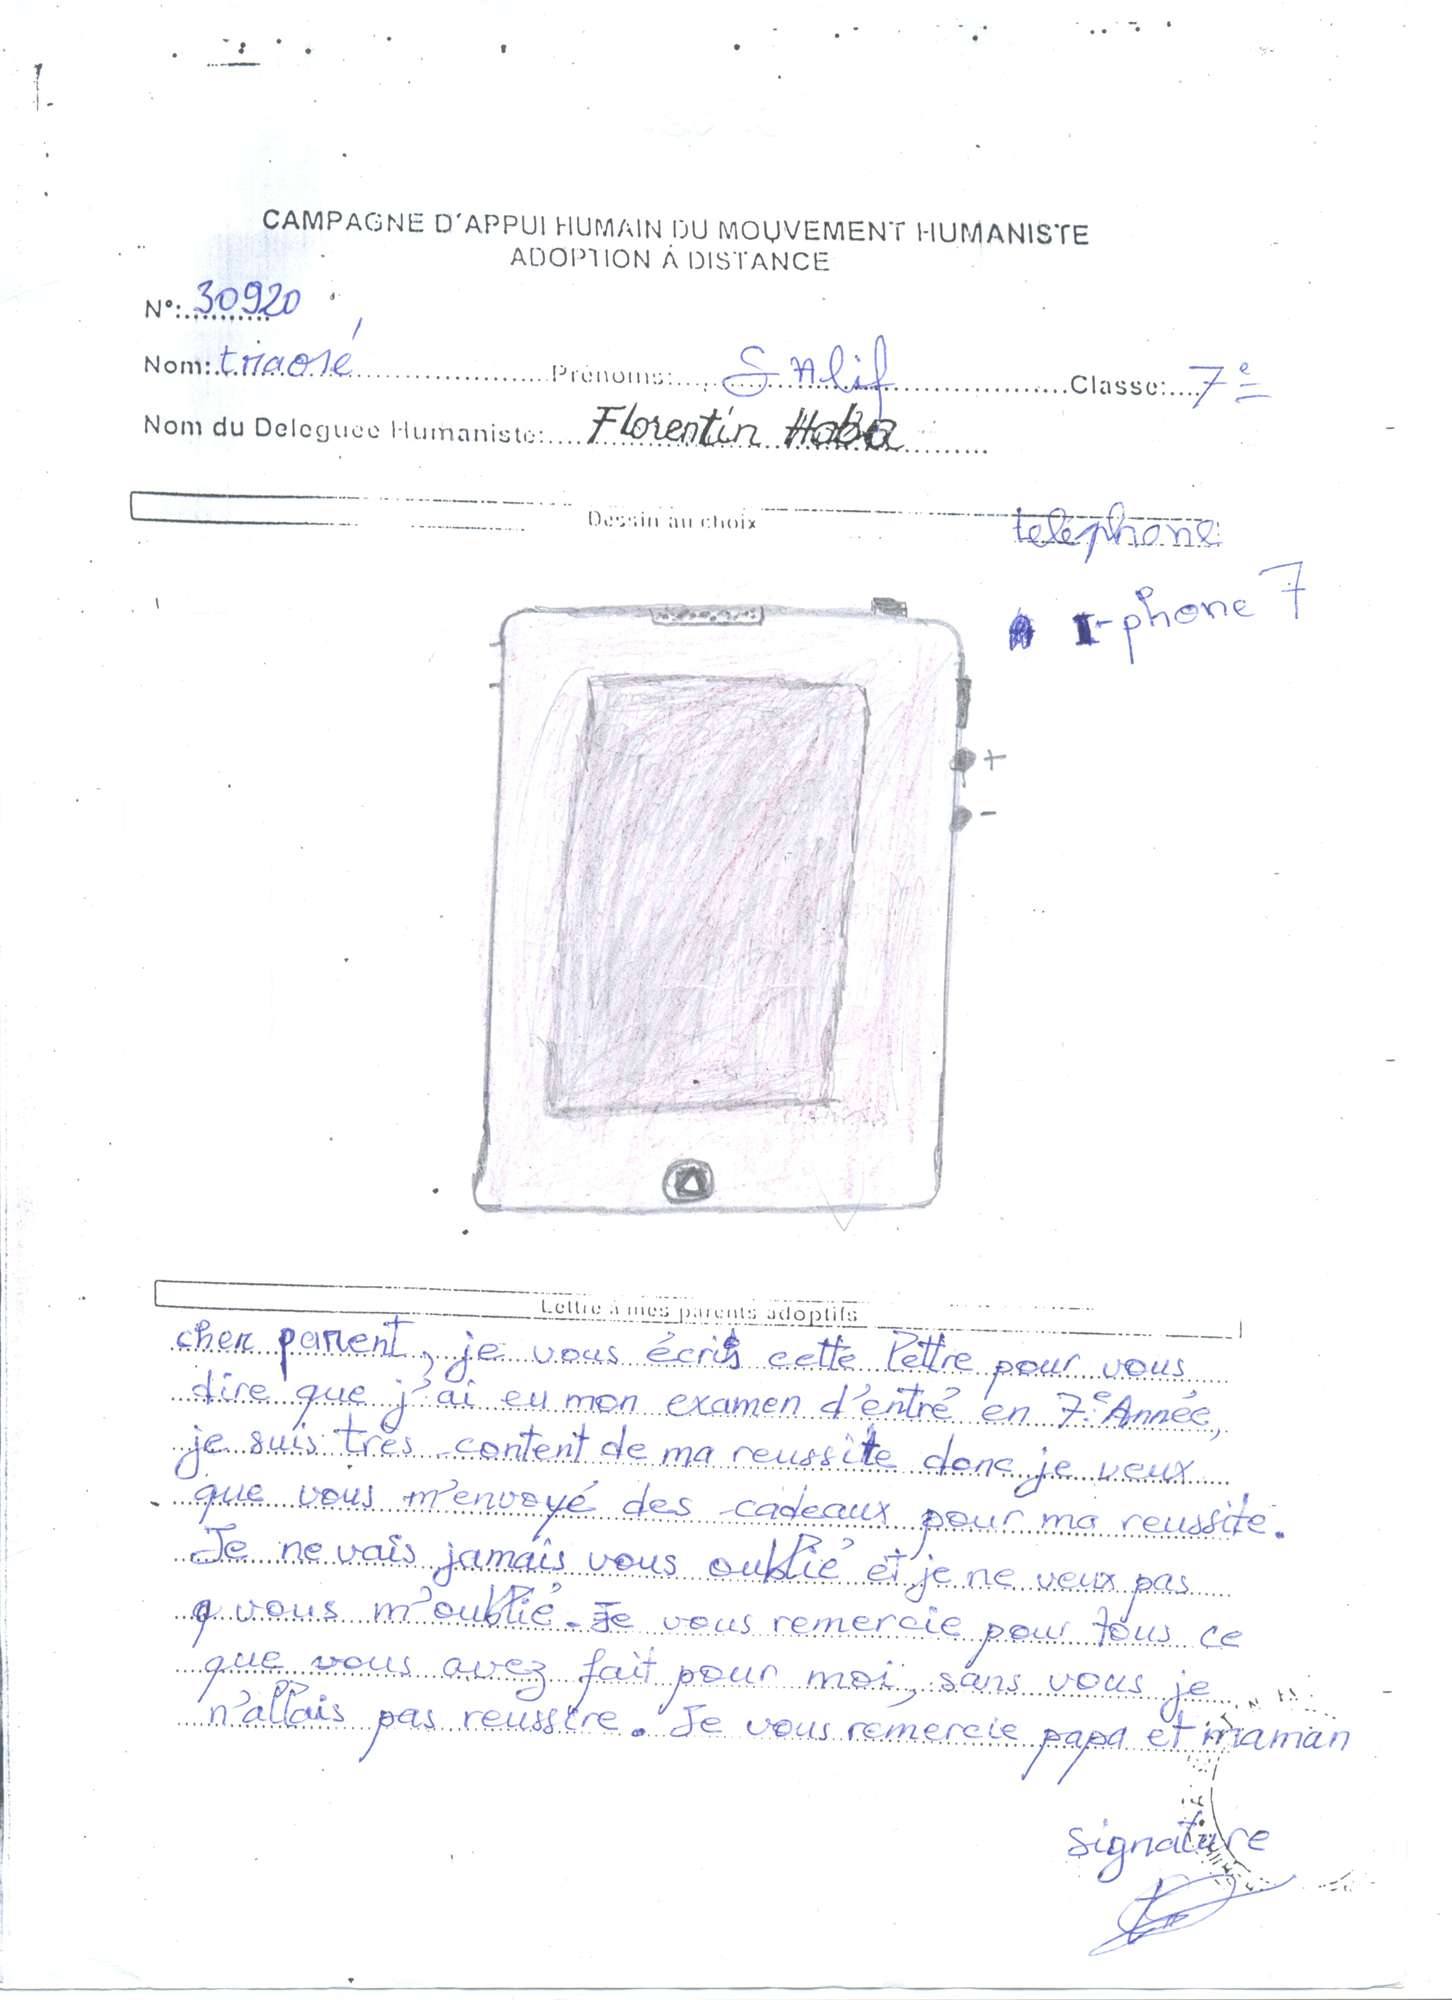 CAMPAGNE D'APPUI HUMAIN DU MOUVEMENT HUMANISTE
ADOPTION À DISTANCE
N°: 30920
Nom: traoré Prénoms: SAlif Classe: 7e
Nom du Deleguee Humaniste: Florentin Haba
Dessin au choix
telephone
I-phone 7
+
-
Lettre à mes parents adoptifs
cher parent, je vous écris cette lettre pour vous
dire que j'ai eu mon examen d'entré en 7e Année,
je suis très content de ma reussite donc je veux
que vous m'envoyé des cadeaux pour ma reussite.
Je ne vais jamais vous oublié et je ne veux pas
q vous m'oublié. Je vous remercie pour tous ce
que vous avez fait pour moi, sans vous je
n'allais pas reussire. Je vous remercie papa et maman
Signature